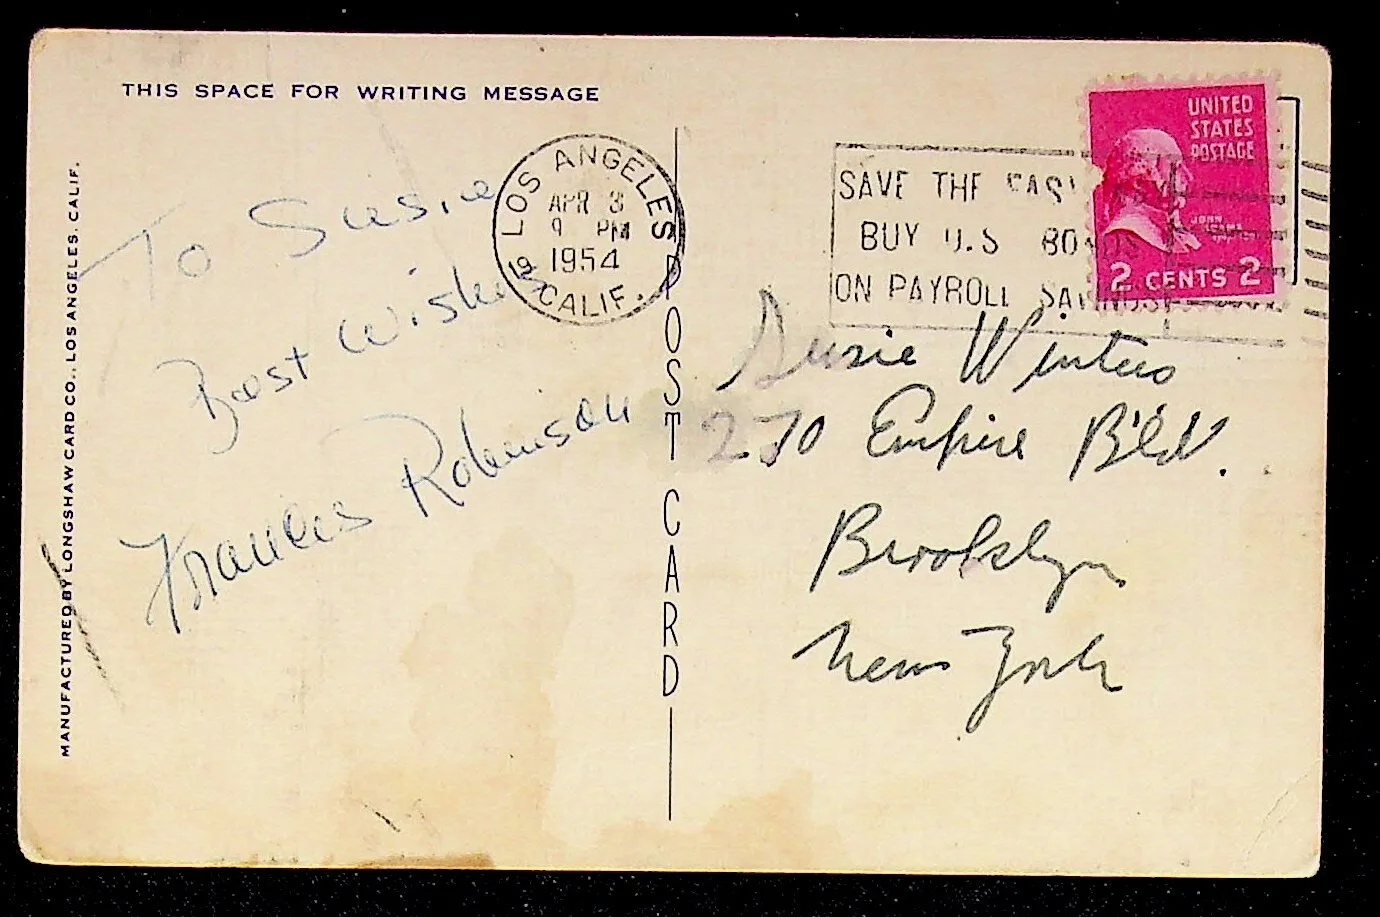 THIS SPACE FOR WRITING MESSAGE
MANUFACTURED BY LONGSHAW CARD CO., LOS ANGELES, CALIF.
To Susie
Best Wishes
Frances Robinson
LOS ANGELES
APR 3
9 PM
1954
CALIF.
POST CARD
SAVE THE EASY WAY
BUY U.S BONDS
ON PAYROLL SAVINGS
UNITED
STATES
POSTAGE
JOHN
2 CENTS 2
Susie Winters
270 Empire Bld.
Brooklyn
New York